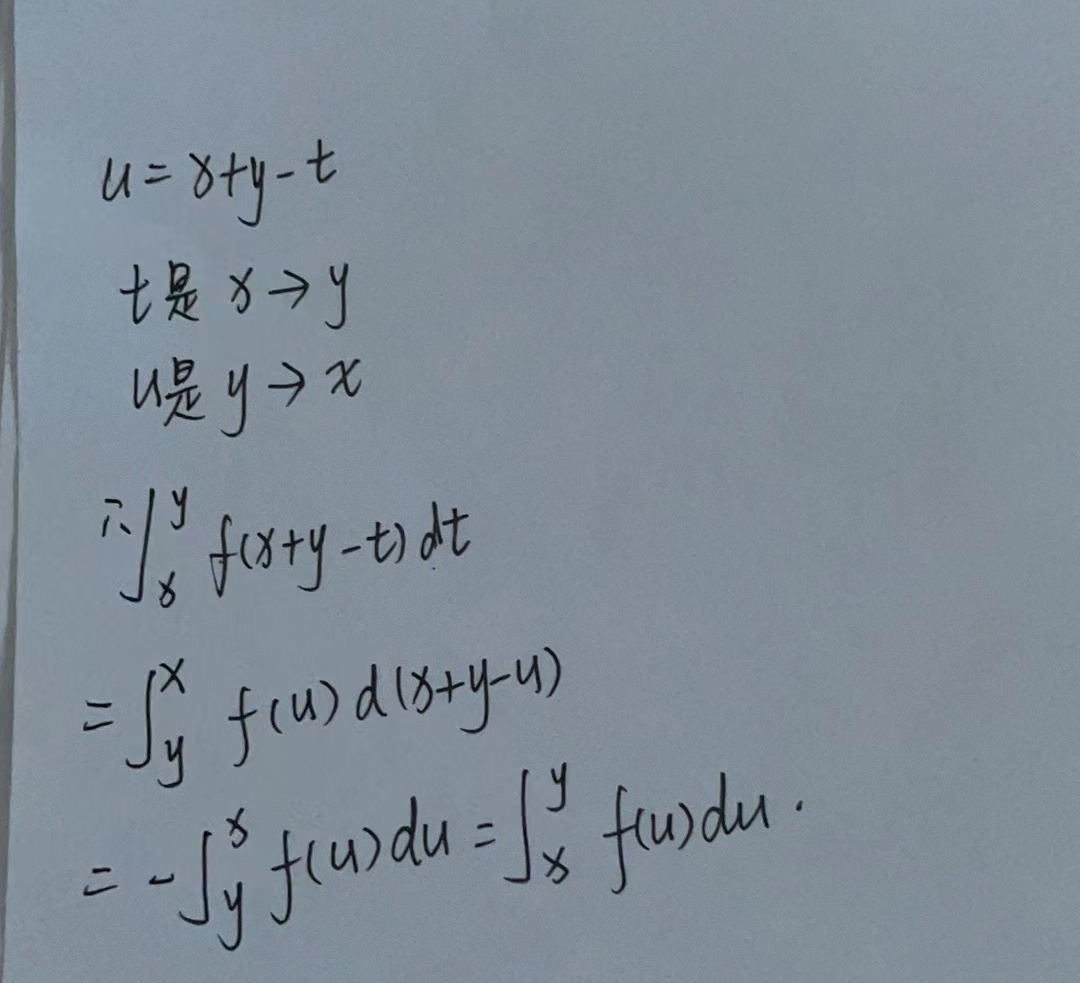 u = x+y-t
t是 x→y
u是 y→x
∴∫_x^y f(x+y-t) dt
= ∫_y^x f(u) d(x+y-u)
= -∫_y^x f(u) du = ∫_x^y f(u) du.